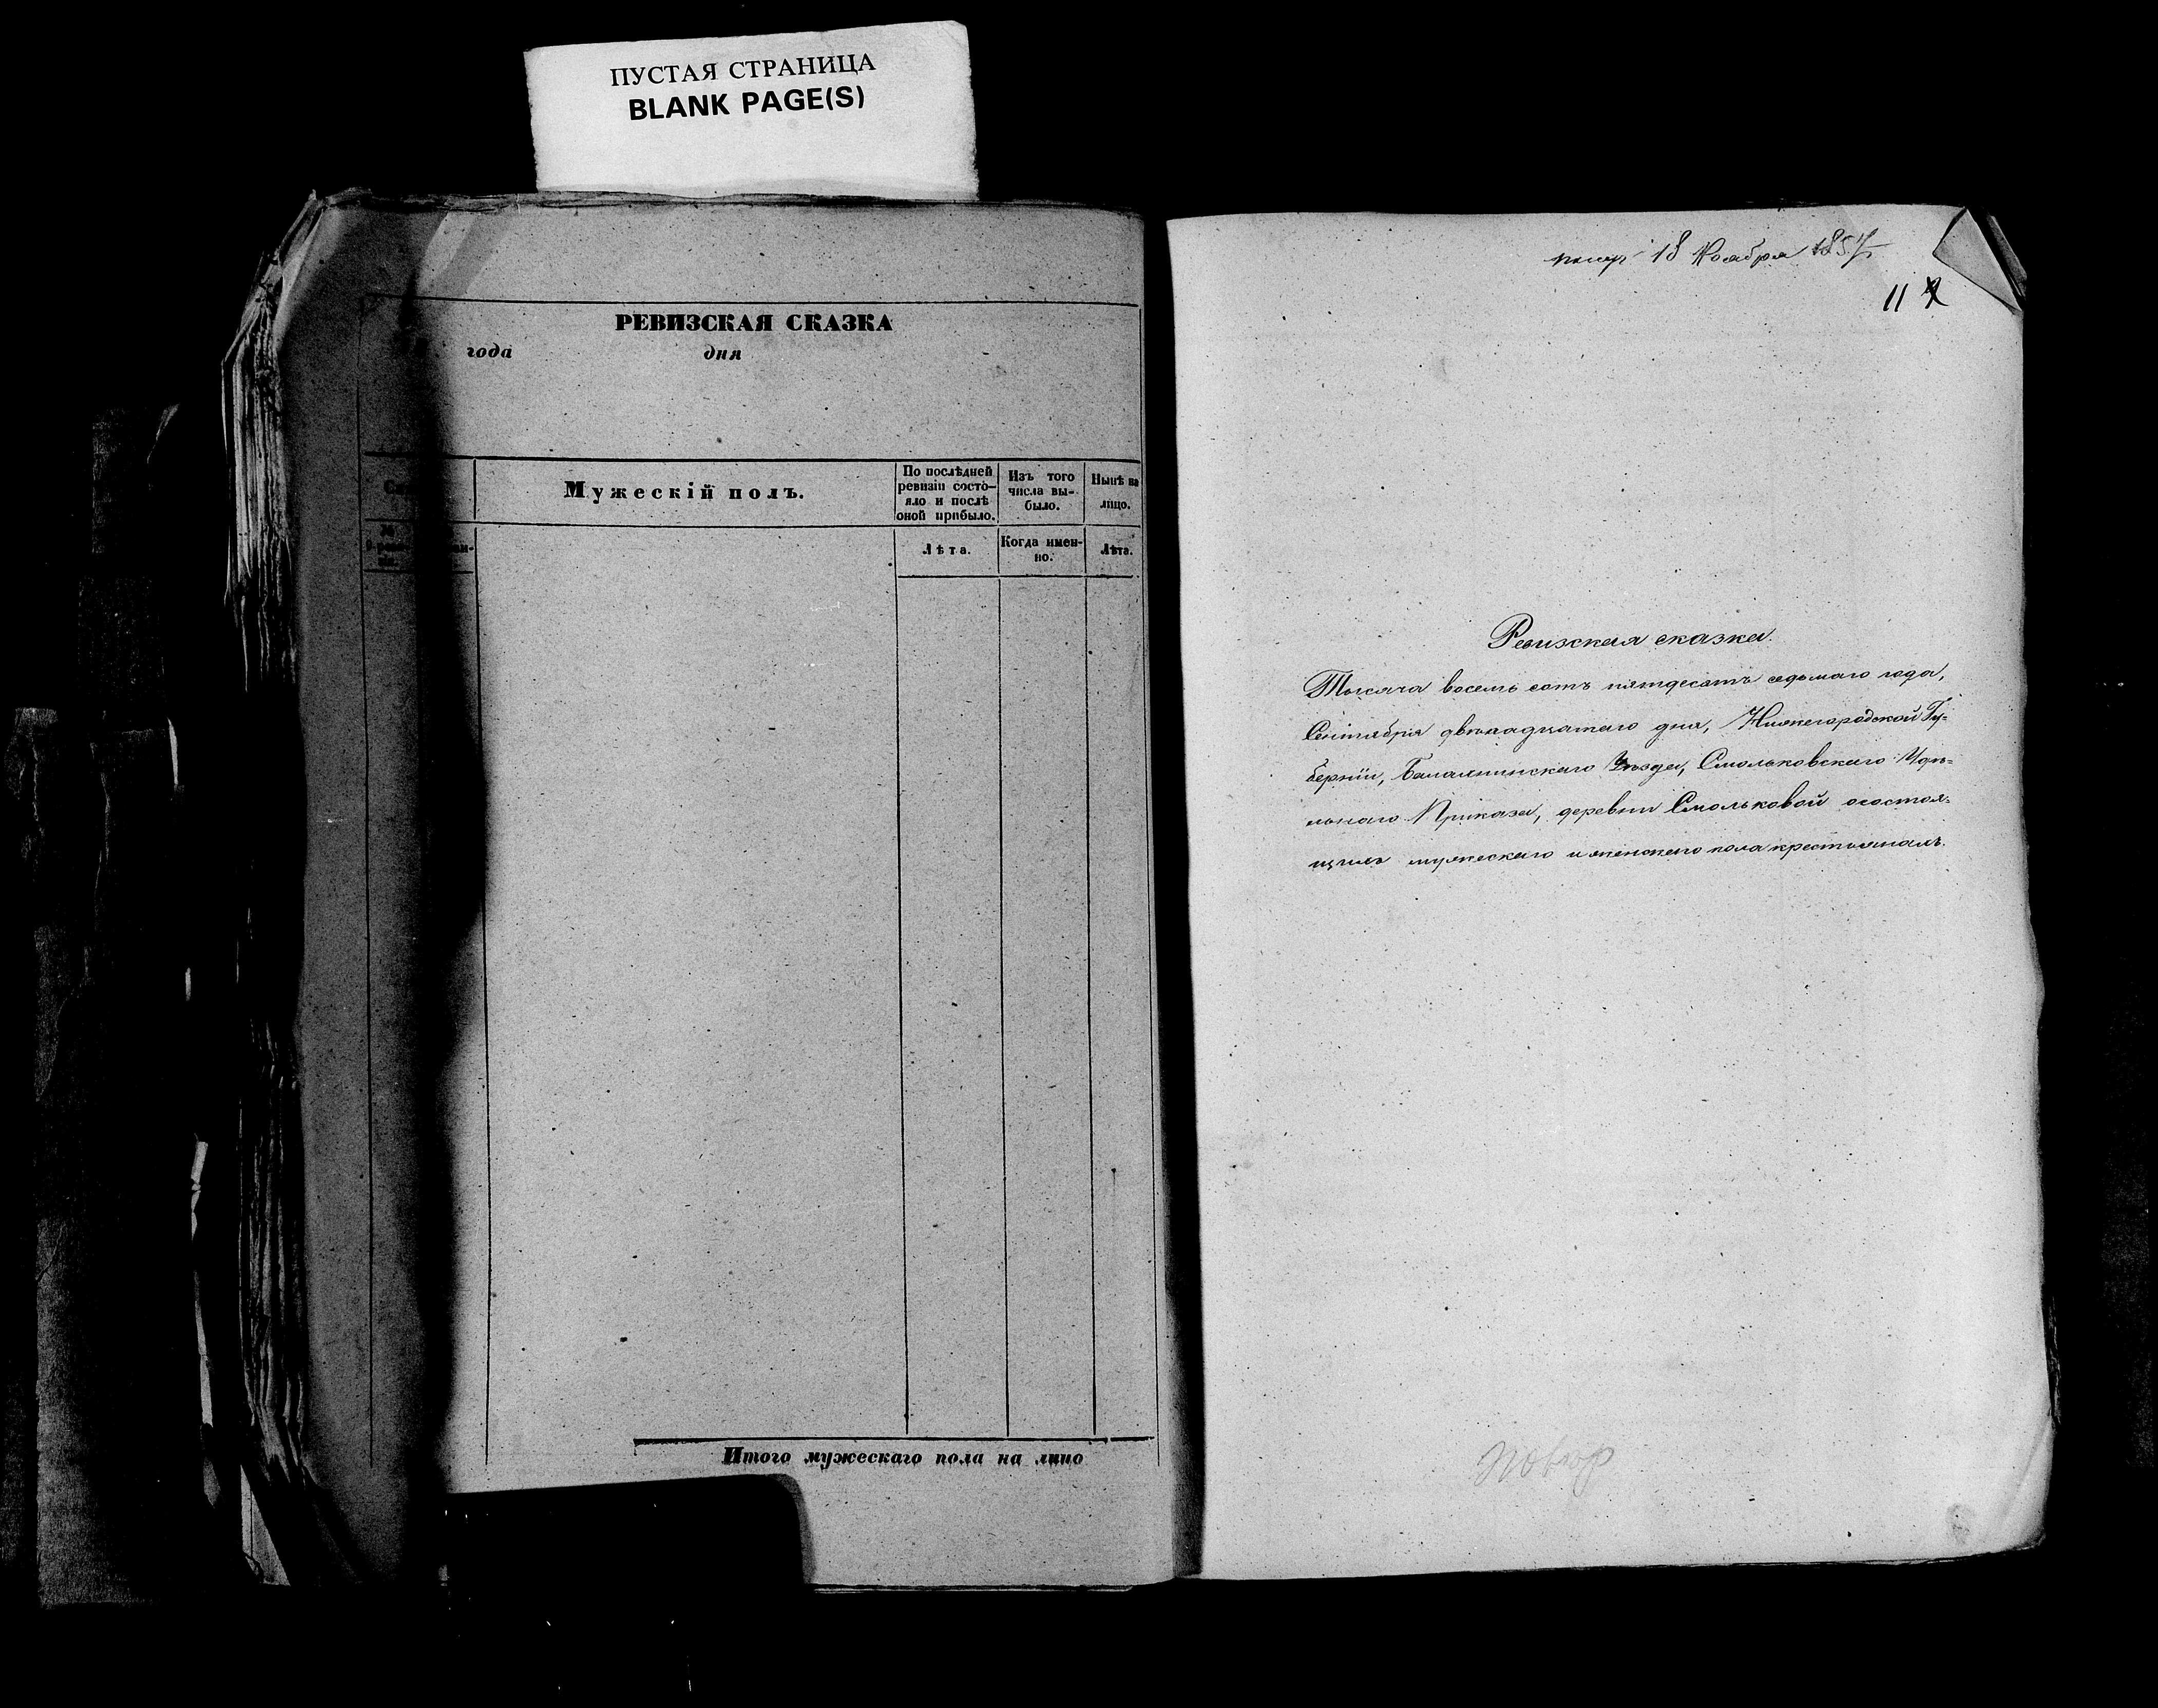 ПУСТАЯ СТРАНИЦА
BLANK PAGE(S)
РЕВИЗСКАЯ СКАЗКА
года дня
Мужескій полъ.
По послѣдней
ревизіи состо-
яло и послѣ
оной прибыло.
Изъ того
числа вы-
было.
Нынѣ на
лицо.
Лѣта.
Когда имен-
но.
Лѣта.
Итого мужескаго пола на лицо
18 Ноября 1857
11
Ревизская сказка.
Тысяча восемь сотъ пятдесятъ седьмаго года,
Сентября двѣнадцатаго дня, Нижегородской Гу-
берніи, Балахнинскаго Уѣзда, Смольковскаго Удѣ-
льнаго Приказа, деревни Смольковой осостоя-
щихъ мужескаго и женскаго пола крестьянахъ.